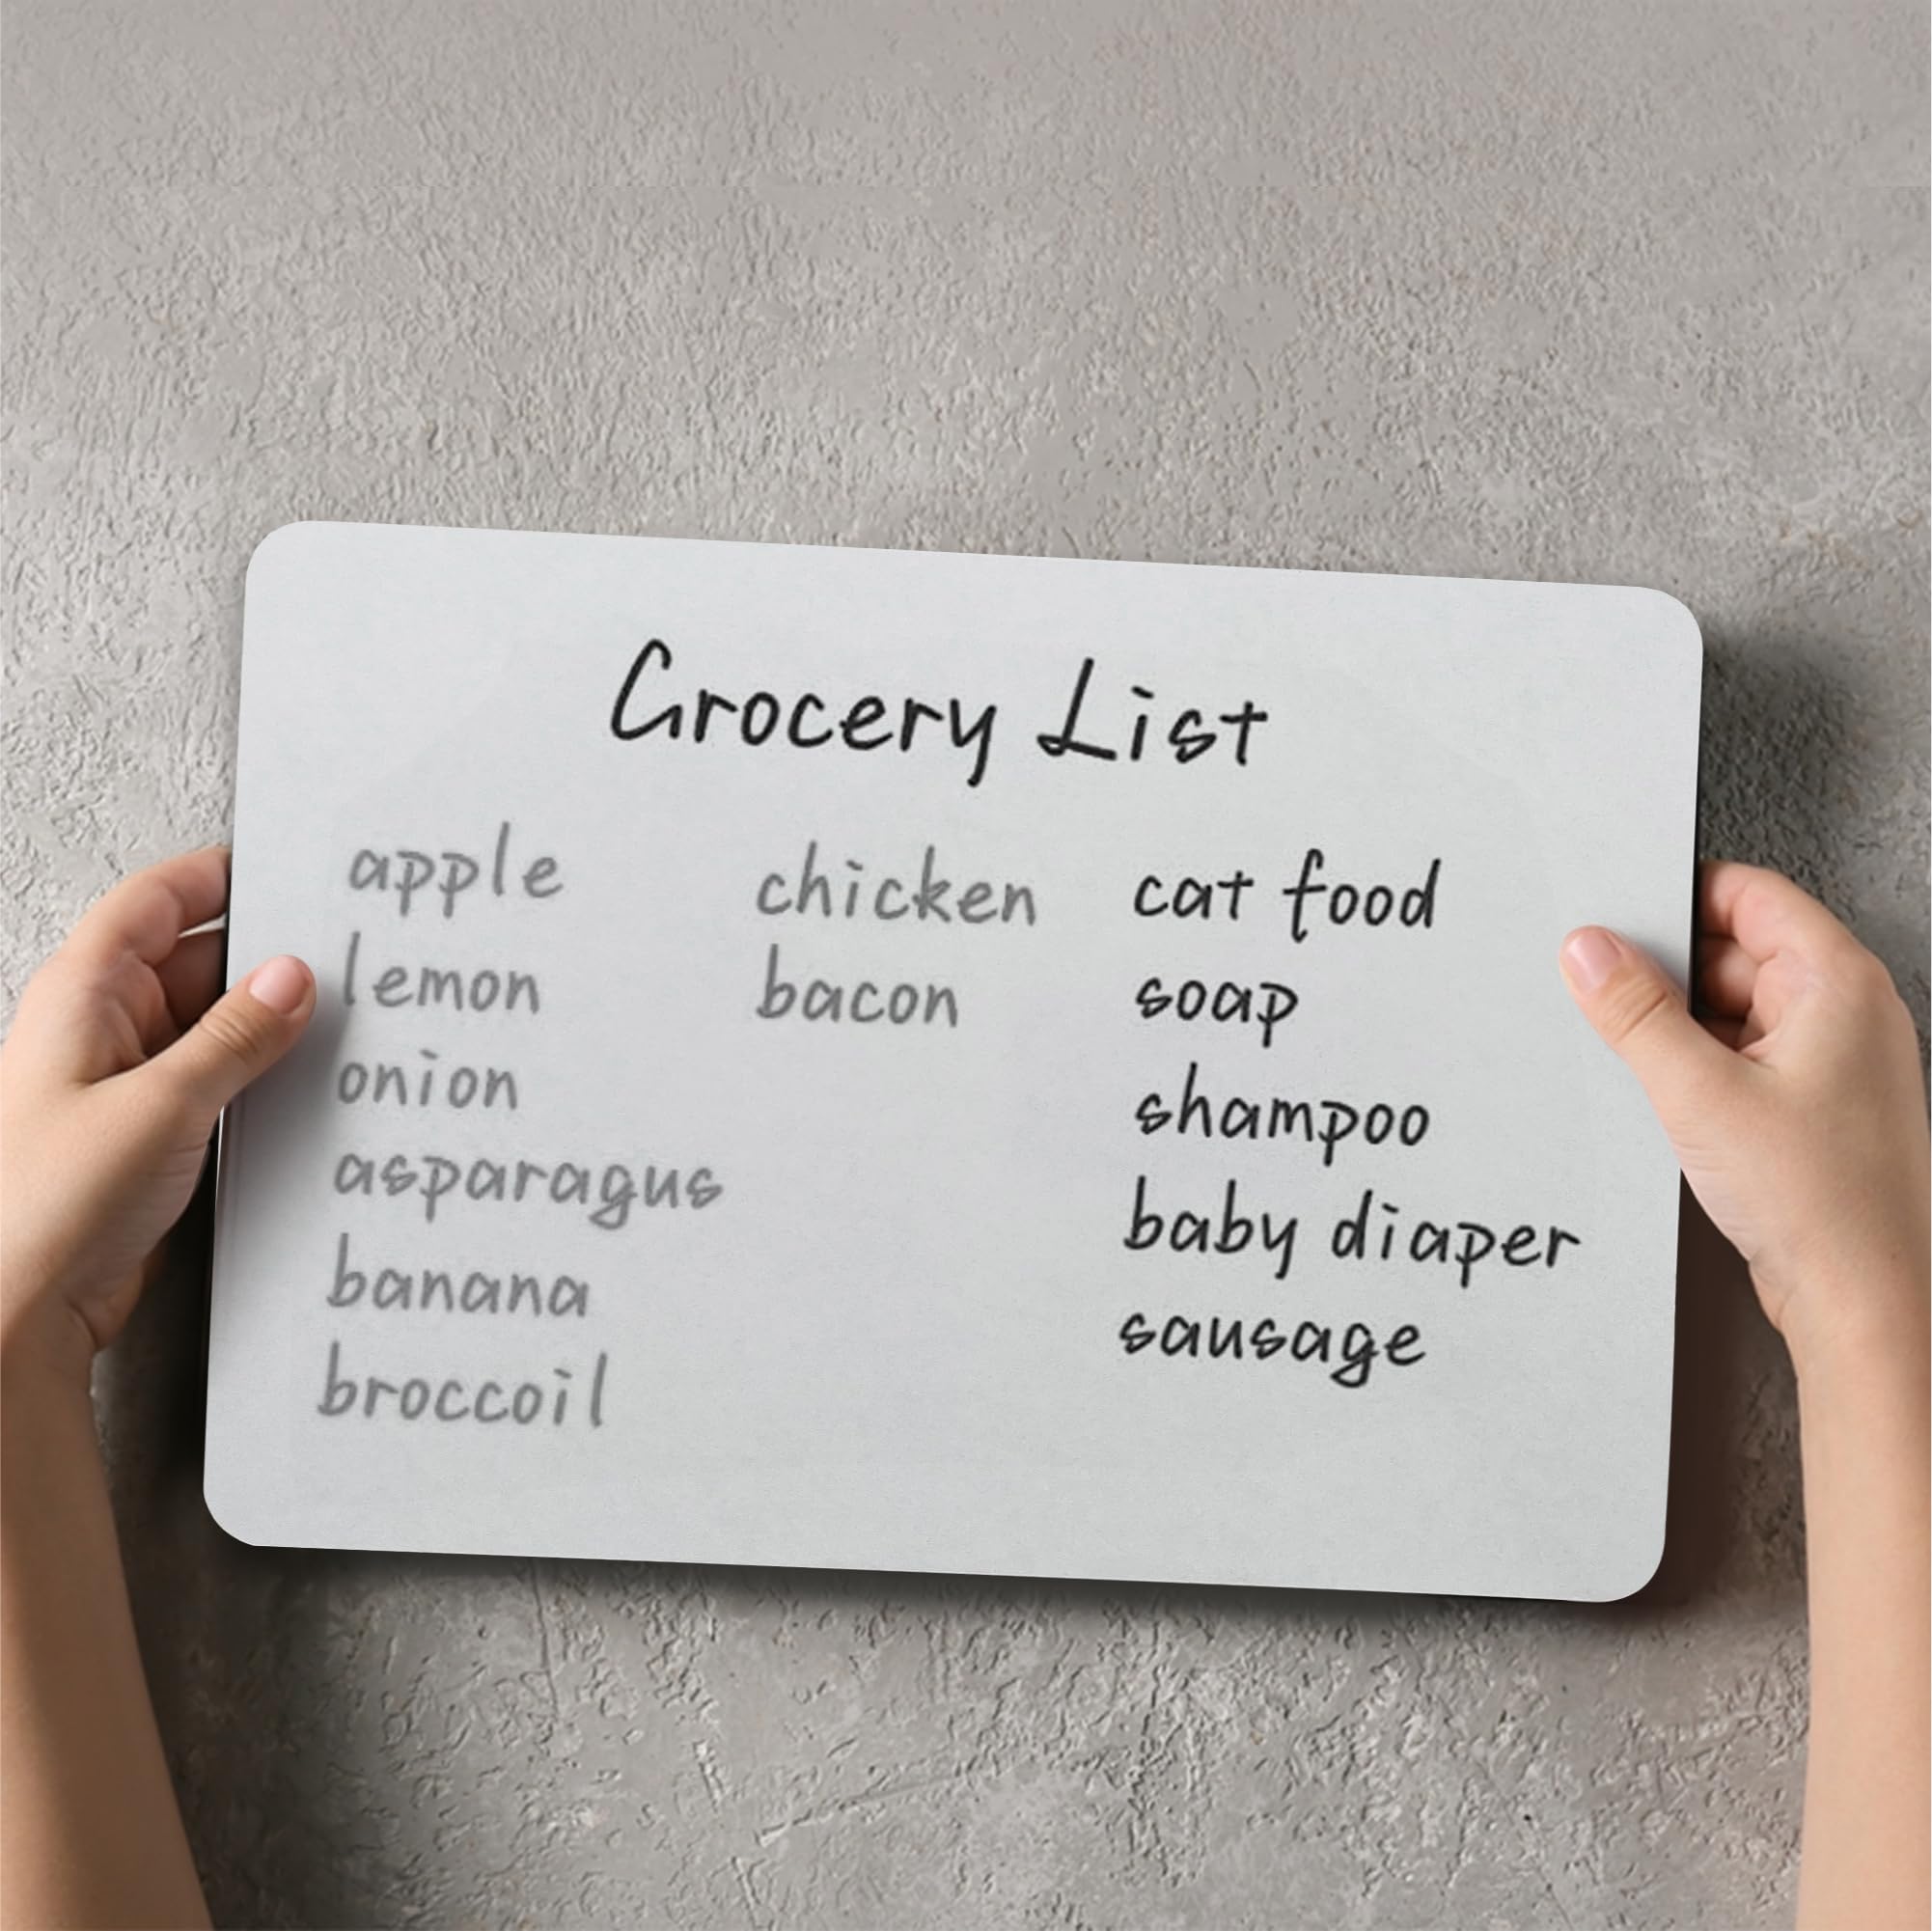 Grocery List
apple
lemon
onion
asparagus
banana
broccoil
chicken
bacon
cat food
soap
shampoo
baby diaper
sausage